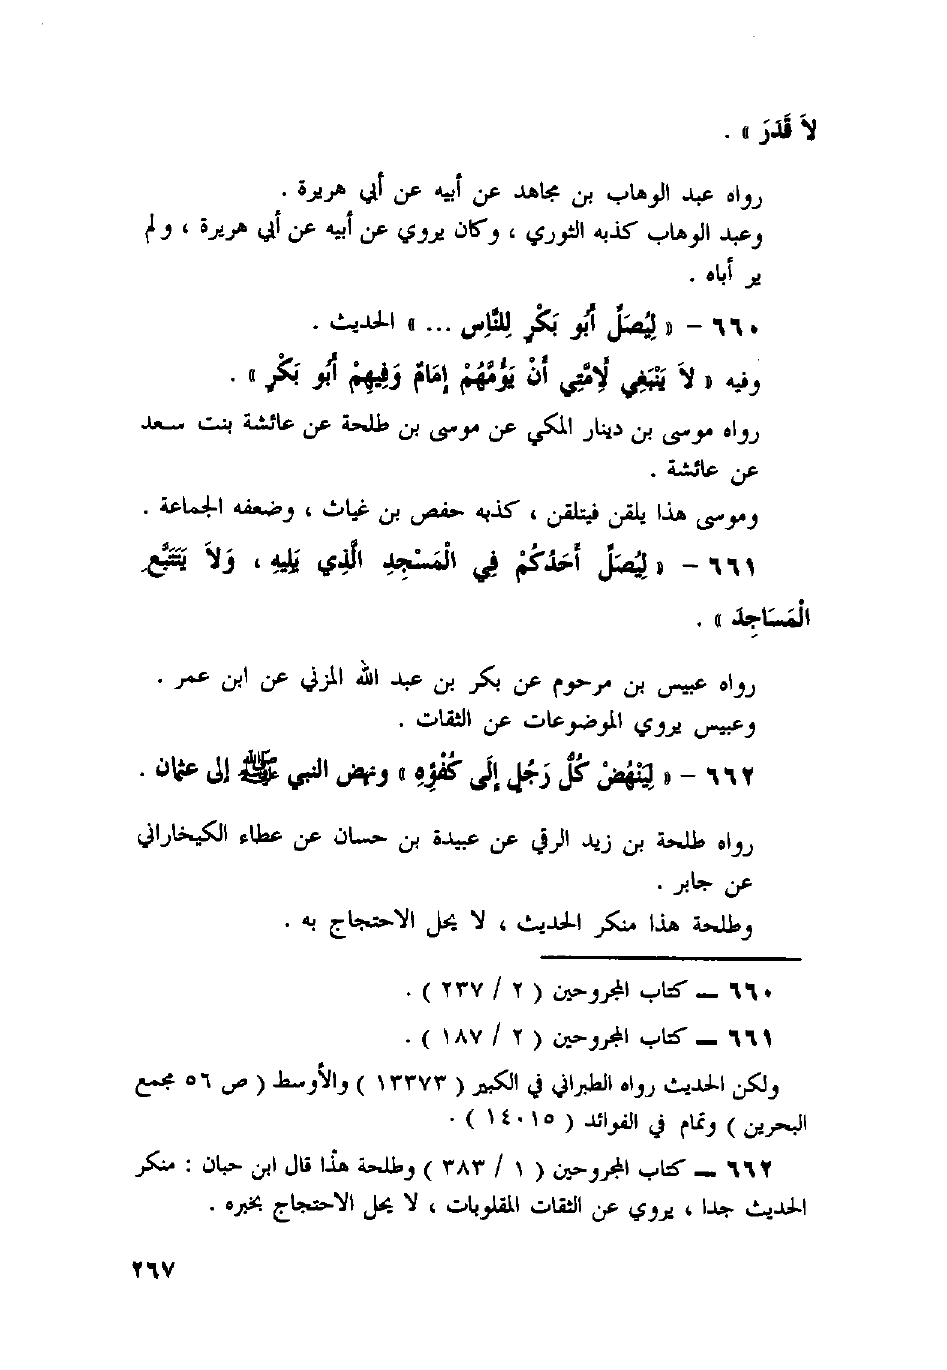 لاَ قَدَرَ » .
رواه عبد الوهاب بن مجاهد عن أبيه عن أبي هريرة .
وعبد الوهاب كذبه الثوري ، وكان يروي عن أبيه عن أبي هريرة ، ولم
ير أباه .
٦٦٠ – « لِيُصَلِّ أَبُو بَكْرٍ لِلنَّاسِ ... » الحديث .
وفيه « لاَ يَنْبَغِي لِأُمَّتِي أَنْ يَؤُمَّهُمْ إِمَامٌ وَفِيهِمْ أَبُو بَكْرٍ » .
رواه موسى بن دينار المكي عن موسى بن طلحة عن عائشة بنت سعد
عن عائشة .
وموسى هذا يلقن فيتلقن ، كذبه حفص بن غياث ، وضعفه الجماعة .
٦٦١ – « لِيُصَلِّ أَحَدُكُمْ فِي الْمَسْجِدِ الَّذِي يَلِيهِ ، وَلاَ يَتَتَبَّعِ
الْمَسَاجِدَ » .
رواه عبيس بن مرحوم عن بكر بن عبد الله المزني عن ابن عمر .
وعبيس يروي الموضوعات عن الثقات .
٦٦٢ – « لِيَنْهَضْ كُلُّ رَجُلٍ إِلَى كُفْؤِهِ » ونهض النبي ﷺ إلى عثمان .
رواه طلحة بن زيد الرقي عن عبيدة بن حسان عن عطاء الكيخاراني
عن جابر .
وطلحة هذا منكر الحديث ، لا يحل الاحتجاج به .
٦٦٠ ــ كتاب المجروحين ( ٢ / ٢٣٧ ) .
٦٦١ ــ كتاب المجروحين ( ٢ / ١٨٧ ) .
ولكن الحديث رواه الطبراني في الكبير ( ١٣٣٧٣ ) والأوسط ( ص ٥٦ مجمع
البحرين ) وتمام في الفوائد ( ١٤٠١٥ ) .
٦٦٢ ــ كتاب المجروحين ( ١ / ٣٨٣ ) وطلحة هذا قال ابن حبان : منكر
الحديث جدا ، يروي عن الثقات المقلوبات ، لا يحل الاحتجاج بخبره .
٢٦٧